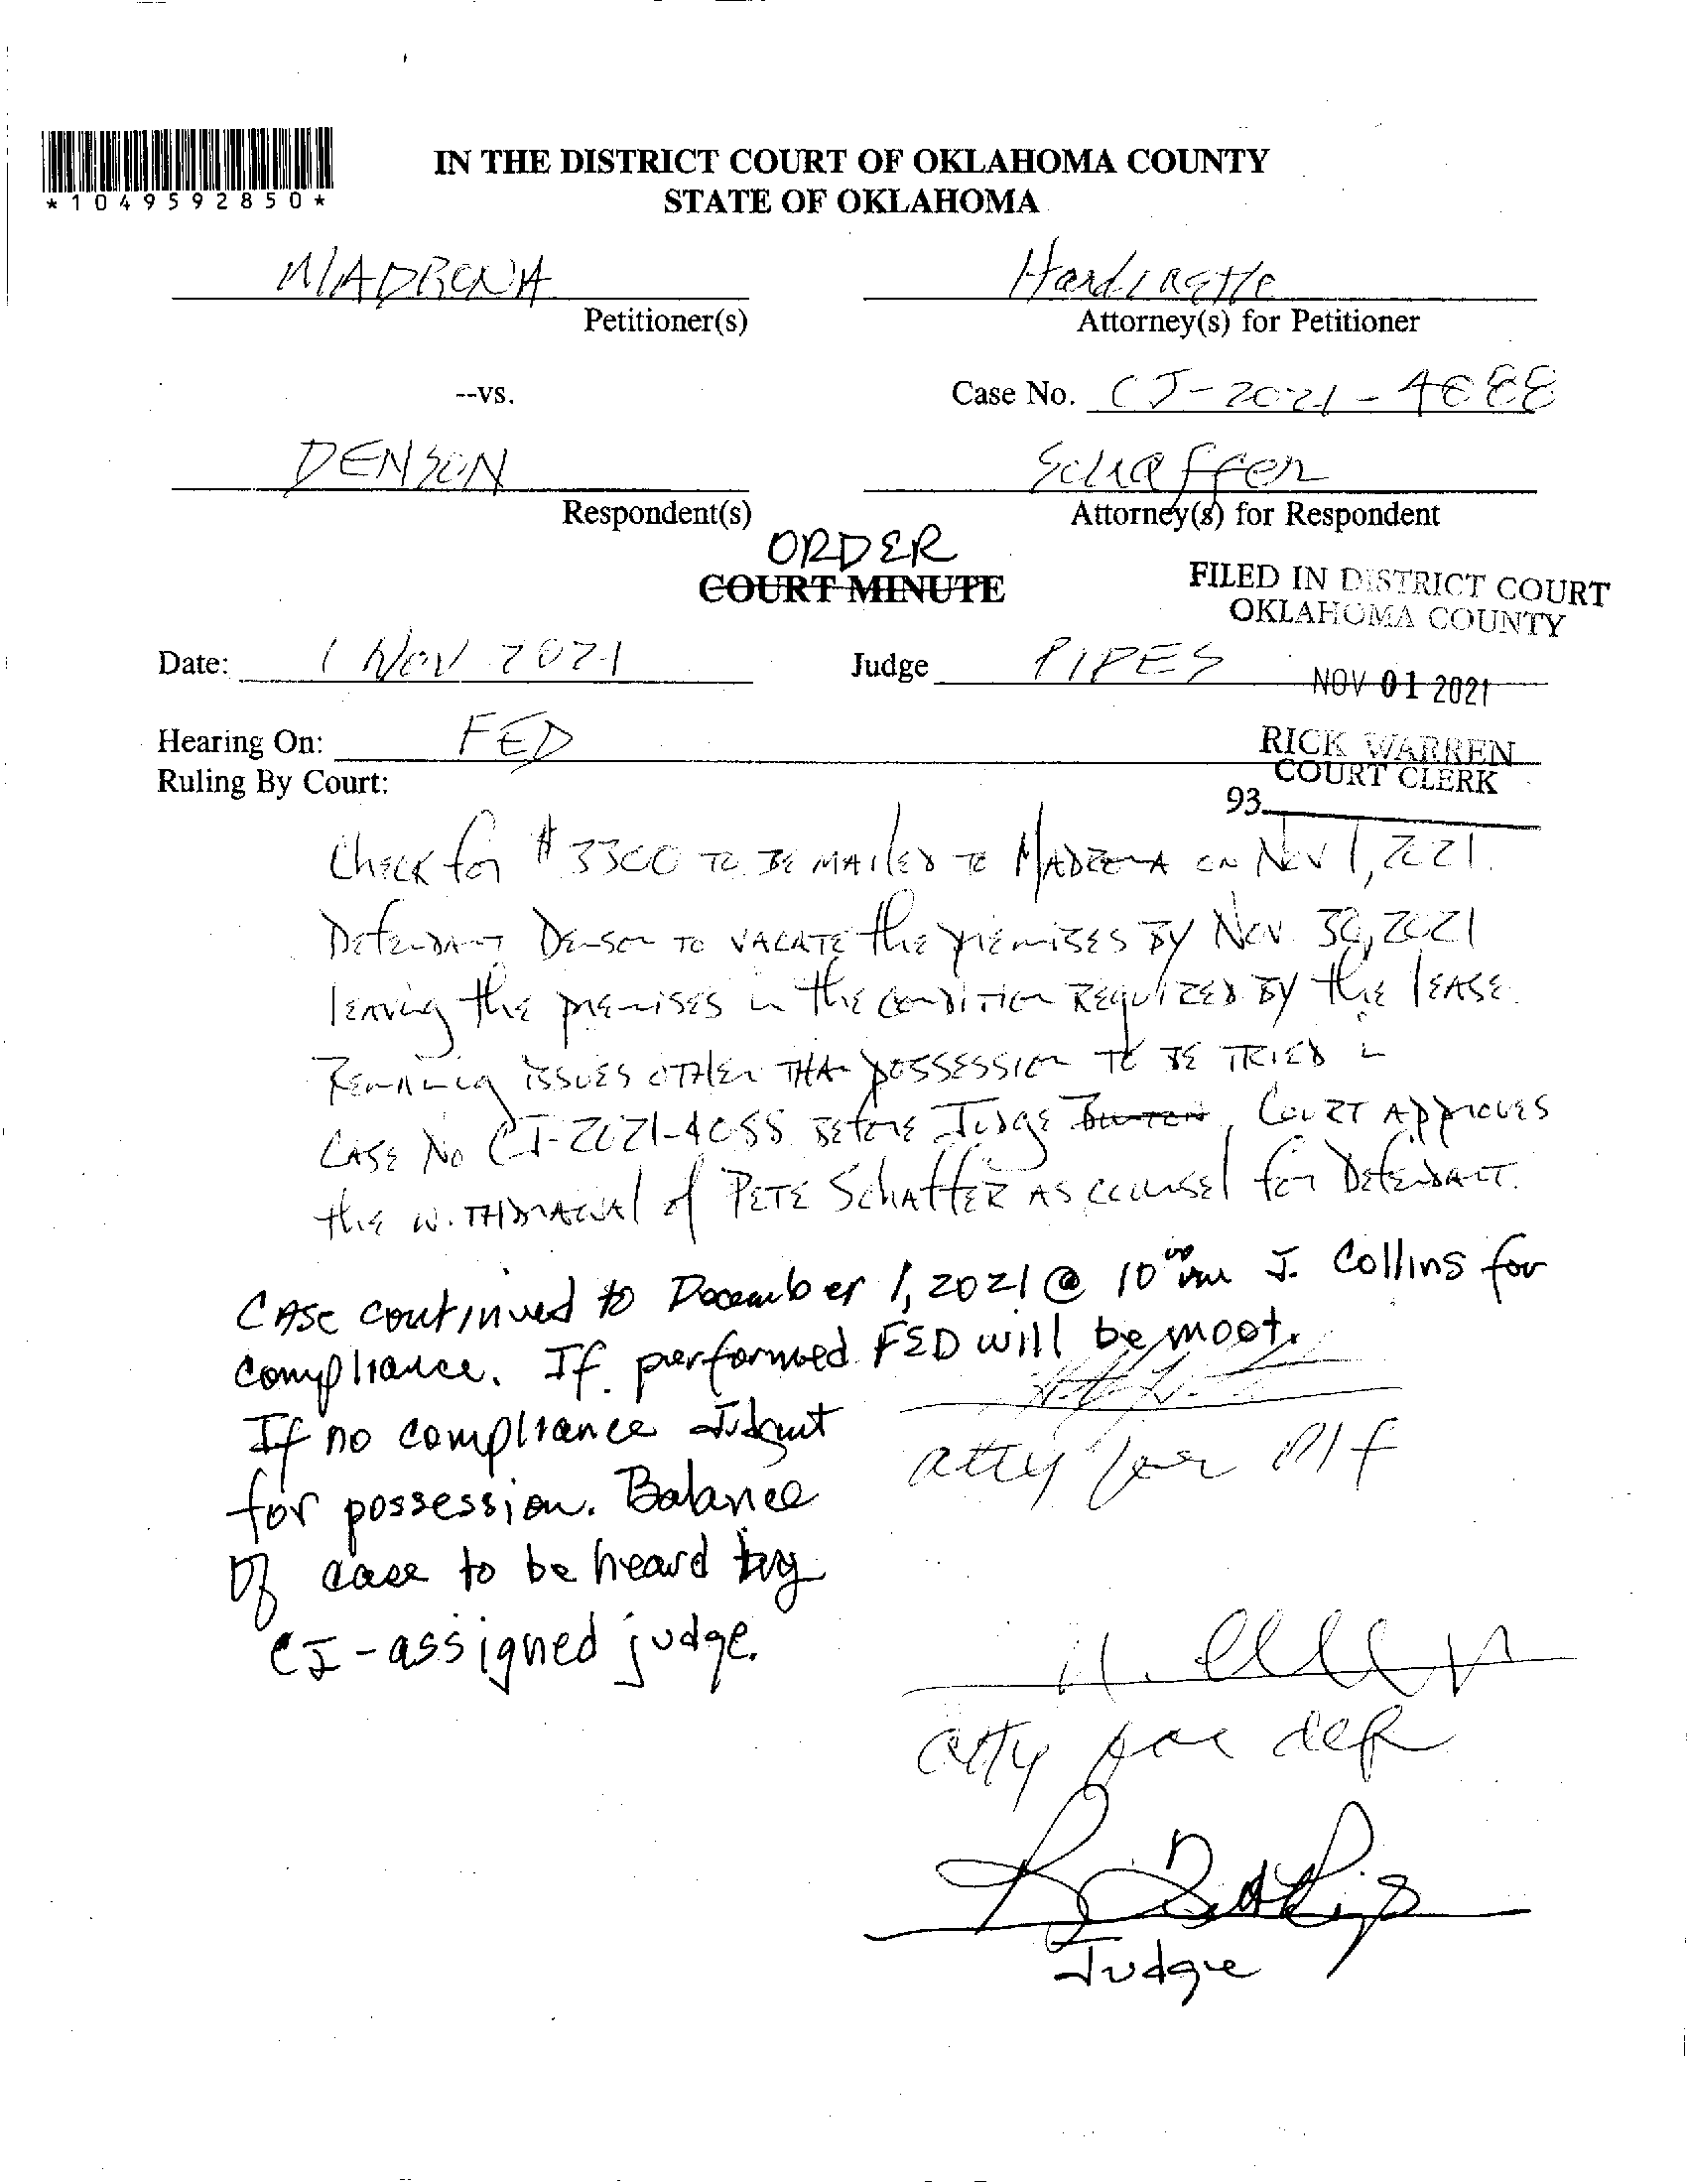 *1049592850*
IN THE DISTRICT COURT OF OKLAHOMA COUNTY
STATE OF OKLAHOMA
MADRONA
Petitioner(s)
Hardcastle
Attorney(s) for Petitioner
--vs.
Case No. CJ-2021-4088
DENSON
Respondent(s)
Schaffer
Attorney(s) for Respondent
ORDER
COURT MINUTE
FILED IN DISTRICT COURT
OKLAHOMA COUNTY
Date: 1 Nov 2021
Judge PIPES
NOV 01 2021
Hearing On: FED
RICK WARREN
COURT CLERK
Ruling By Court:
93
Check for $3300 TO BE MAILED TO MADRONA ON NOV 1, 2021.
Defendant Denson TO VACATE the premises BY Nov. 30, 2021
leaving the premises in the condition REQUIRED BY the lease.
Remaining issues other THAN possession TO BE TRIED in
CASE No CJ-2021-4088 before Judge , COURT Approves
the WITHDRAWAL of PETE SchAffER AS counsel for Defendant.
CASE continued to December 1, 2021 @ 10 00 am J. Collins for
compliance. If performed FED will be moot.
If no compliance Judgmt
for possession. Balance
Of case to be heard by
CJ-assigned judge.
atty for Plf
atty for def
Judge